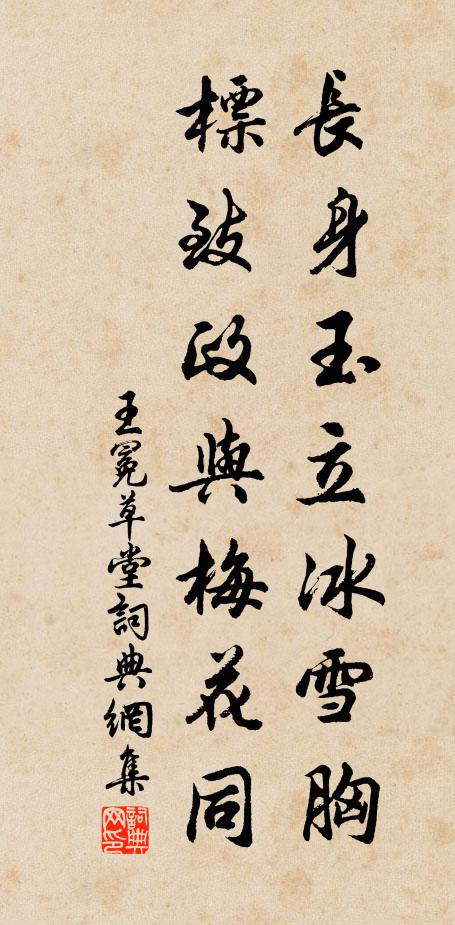 長身玉立冰雪胸
標致政與梅花同
王冕草堂詞典網集
詞典網印